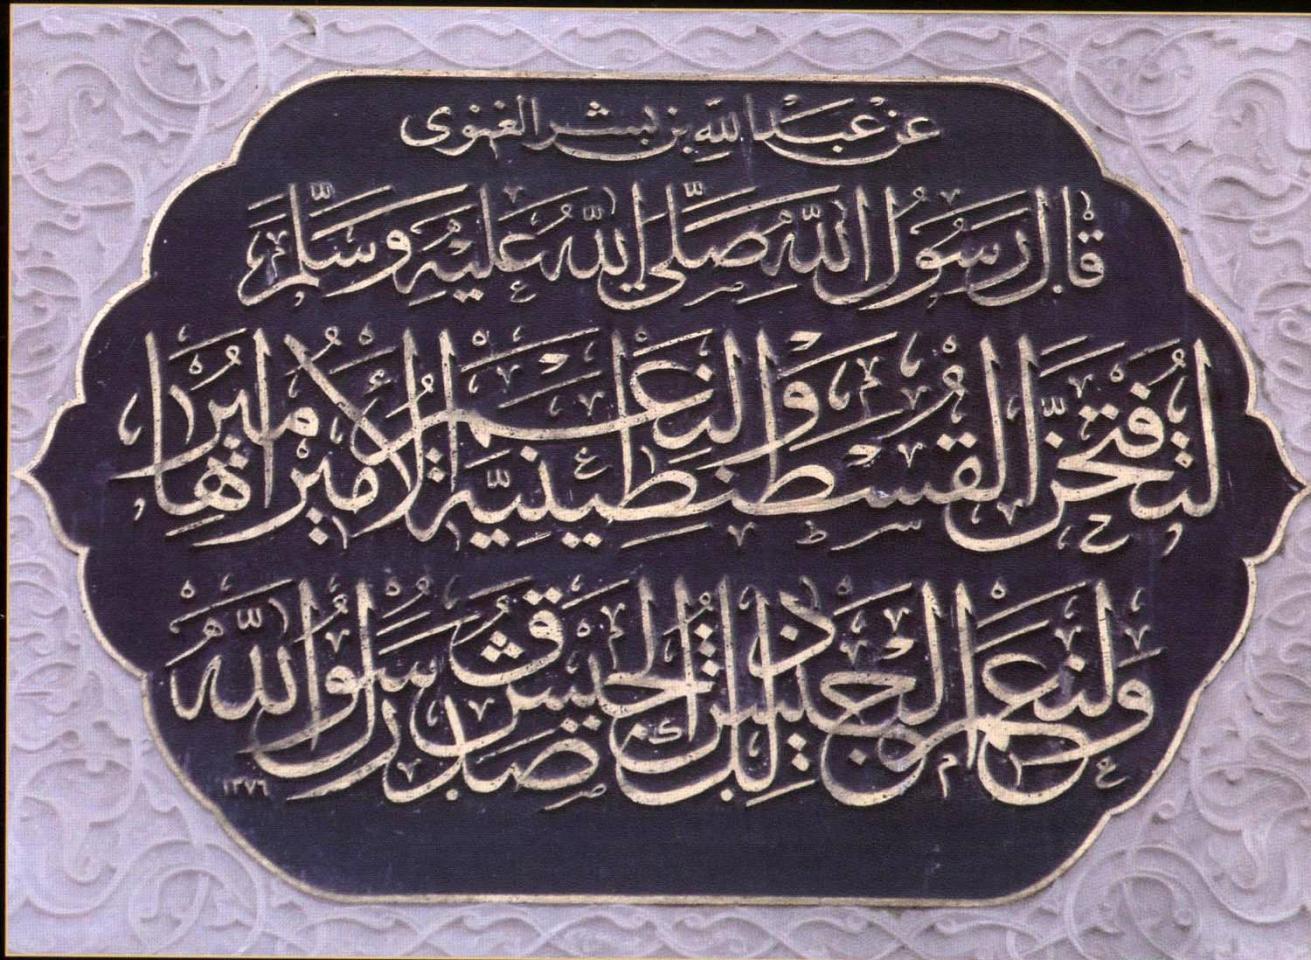 عن عبد الله بن بشر الغنوي
قَالَ رَسُولُ اللهِ صَلَّى اللهُ عَلَيْهِ وَسَلَّمَ
لَتُفْتَحَنَّ الْقُسْطَنْطِينِيَّةُ وَلَنِعْمَ الْأَمِيرُ أَمِيرُهَا
وَلَنِعْمَ الْجَيْشُ ذٰلِكَ الْجَيْشُ صَدَقَ رَسُولُ اللهِ
١٣٧٦